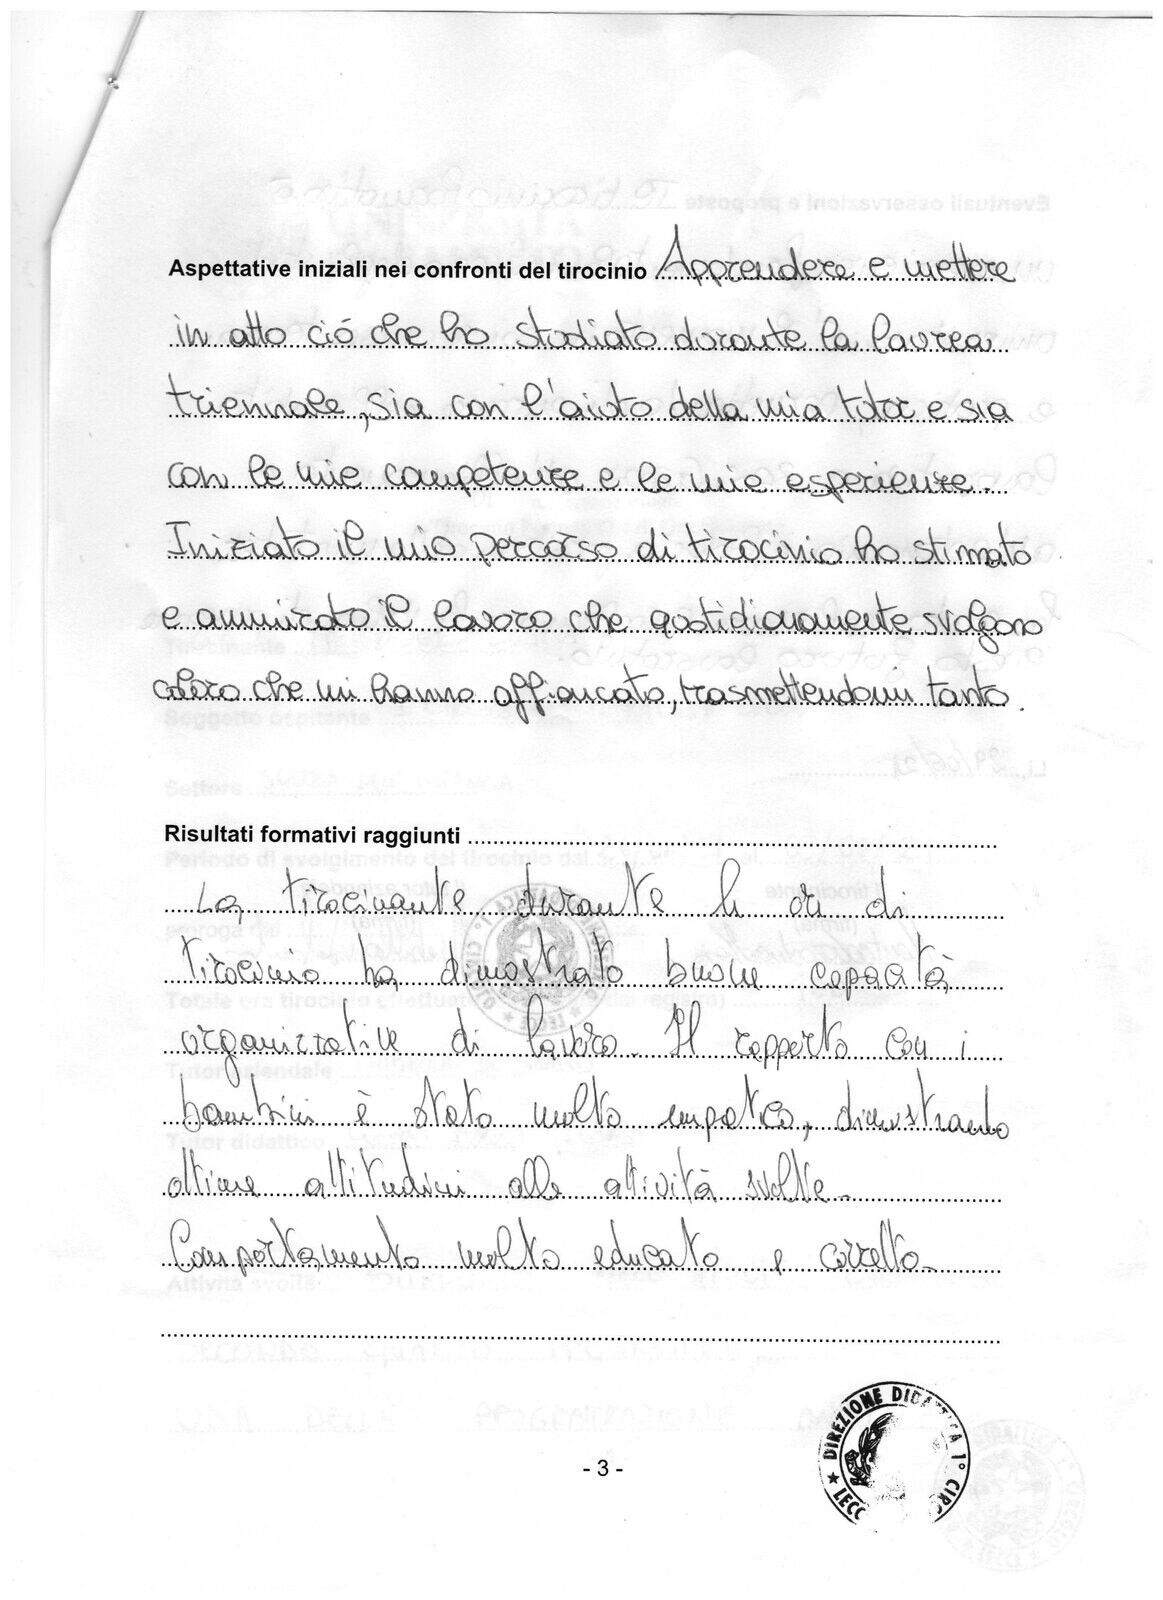 Aspettative iniziali nei confronti del tirocinio Apprendere e mettere
in atto ció che ho studiato durante la laurea
triennale, sia con l'aiuto della mia tutor e sia
con le mie competenze e le mie esperienze.
Iniziato il mio percorso di tirocinio ho stimato
e ammirato il lavoro che quotidianamente svolgono
coloro che mi hanno affiancato, trasmettendomi tanto.
Risultati formativi raggiunti
La tirocinante durante le ore di
tirocinio ha dimostrato buone capacità
organizzative di lavoro. Il rapporto con i
bambini è stato molto empatico, dimostrando
ottime attitudini alle attività svolte.
Comportamento molto educato e corretto.
DIREZIONE DIDATTICA 1° CIRC
LECC
- 3 -